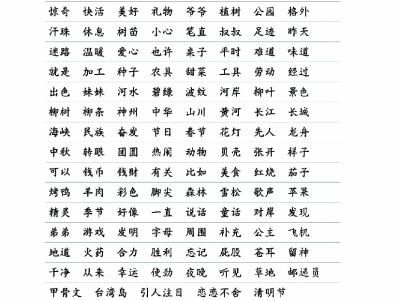 惊奇 快活 美好 礼物 爷爷 植树 公园 格外
汗珠 休息 树苗 小心 笔直 叔叔 足迹 昨天
迷路 温暖 爱心 也许 桌子 平时 难道 味道
就是 加工 种子 农具 甜菜 工具 劳动 经过
出色 妹妹 河水 碧绿 波纹 河岸 柳叶 景色
柳树 柳条 神州 中华 山川 黄河 长江 长城
海峡 民族 奋发 节日 春节 花灯 先人 龙舟
中秋 转眼 团圆 热闹 动物 贝壳 张开 样子
可以 钱币 钱财 有关 比如 美食 红烧 茄子
烤鸭 羊肉 彩色 脚尖 森林 雪松 歌声 苹果
精灵 季节 好像 一直 说话 童话 对岸 发现
弟弟 游戏 发明 字母 周围 补充 公主 飞机
地道 火药 合力 胜利 忘记 屁股 苍耳 留神
干净 从来 幸运 使劲 夜晚 听见 草地 邮递员
甲骨文 台湾岛 引人注目 恋恋不舍 清明节